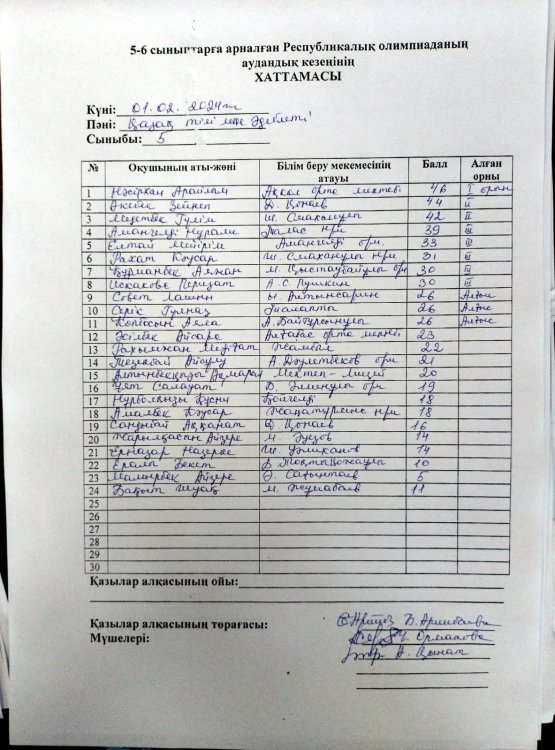 5-6 сыныптарға арналған Республикалық олимпиаданың
аудандық кезеңінің
ХАТТАМАСЫ
Күні: 01.02.2024ж
Пәні: Қазақ тілі және әдебиеті
Сыныбы: 5
№ Оқушының аты-жөні Білім беру мекемесінің атауы Балл Алған орны
1 Нәсірхан Арайлым Ақкөл орта мектебі 46 I орын
2 Әкебек Зейнеп Д. Қонаев 44 II
3 Медетбек Гүлім Ш. Смаханұлы 42 II
4 Амангелді Нұрали Талас нри 39 III
5 Елтай Мейірім Амангелді орт. 33 III
6 Рахат Кәусар Ш. Смаханұлы нри 31 III
7 Құрманбек Алжан М. Қыстаубайұлы орт 30 III
8 Искакова Перизат А.С. Пушкин 30 III
9 Совет Лашын Ы. Алтынсарин 26 Алғыс
10 Серік Гүлназ Тамалты 26 Алғыс
11 Көпбосын Алла А. Байтұрсынұлы 26 Алғыс
12 Әсілбек Айсара Алғабас орта мектебі 23
13 Рахымжан Медғат Жамбыл 22
14 Айару А. Дәулетбеков орт. 21
15 Алтынбекқызы Ақмарал Мектеп-лицей 20
16 Ұят Салауат Б. орт 19
17 Нұрболқызы Хүсни Көйгелді 18
18 Амалбек Кәусар нри 18
19 Сандыбай Аққанат Д. Қонаев 16
20 Айзере М. Әуезов 14
21 Ерназар Назерке Ш. Уәлиханов 14
22 Ералы Бекет Д. Тоқтықожаұлы 10
23 Мамырбек Айзере Ә. Сағынтаев 5
24 Бақыт Шуақ М. Жұмабаев 11
25
26
27
28
29
30
Қазылар алқасының ойы:
Қазылар алқасының төрағасы: Б. Арынбаева
Мүшелері: Ч. Орманова
А. Қынат